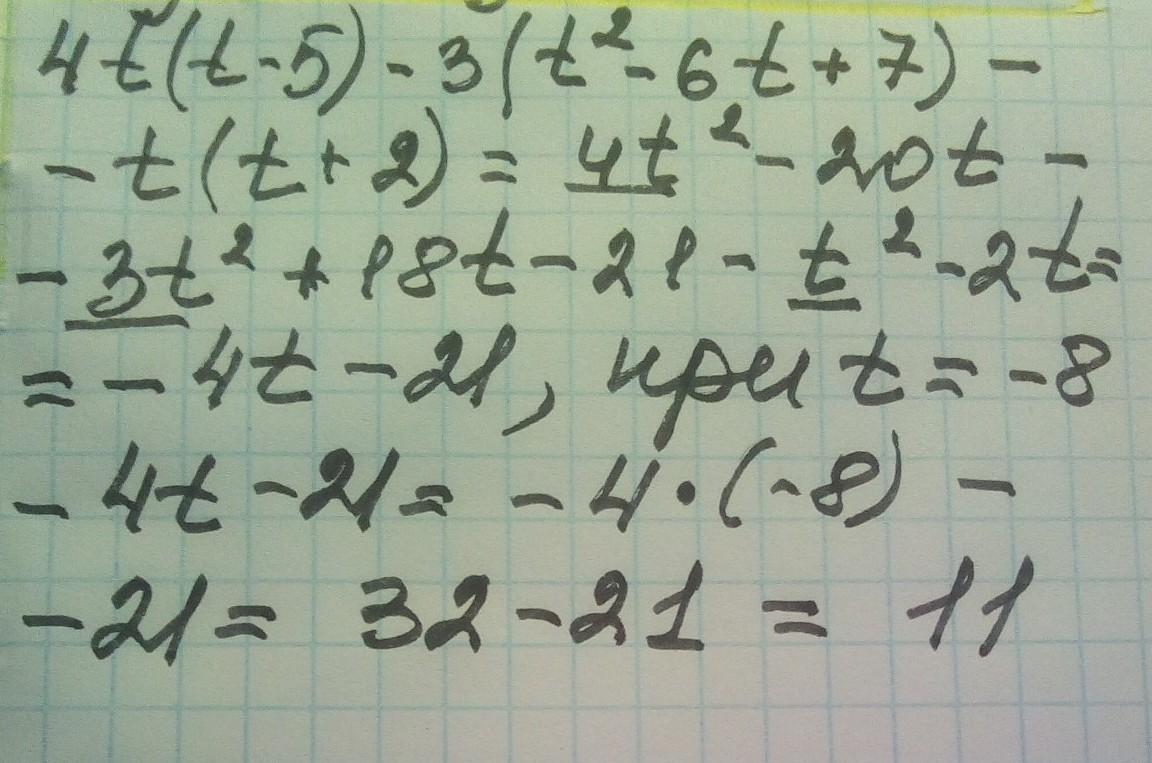 4t(t-5)-3(t²-6t+7)-
-t(t+2)=4t²-20t-
-3t²+18t-21-t²-2t=
=-4t-21, при t=-8
-4t-21=-4·(-8)-
-21=32-21=11